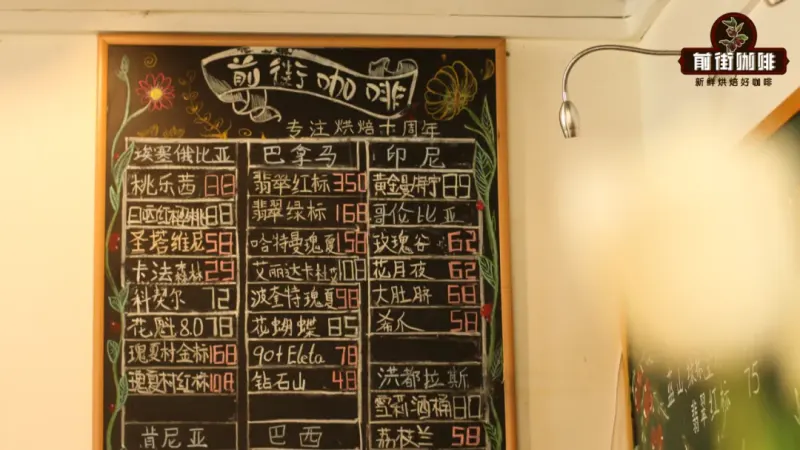 前街咖啡
新鲜烘焙好咖啡
前街咖啡
专注烘焙十周年
埃塞俄比亚
桃乐茜 88
日晒红樱桃 88
圣塔维尼 58
卡法森林 29
科契尔 72
花魁8.0 78
瑰夏村金标 168
瑰夏村红标 108
肯尼亚
巴拿马
翡翠红标 350
翡翠绿标 168
哈特曼瑰夏 158
艾丽达 108
波奎特瑰夏 98
花蝴蝶 85
90+ Eleta 78
钻石山 48
巴西
印尼
黄金曼特宁 89
哥伦比亚
玫瑰谷 62
花月夜 62
大肚脐 68
希爪 58
洪都拉斯
雪莉酒桶 80
荔枝兰 58
翡翠红标 75